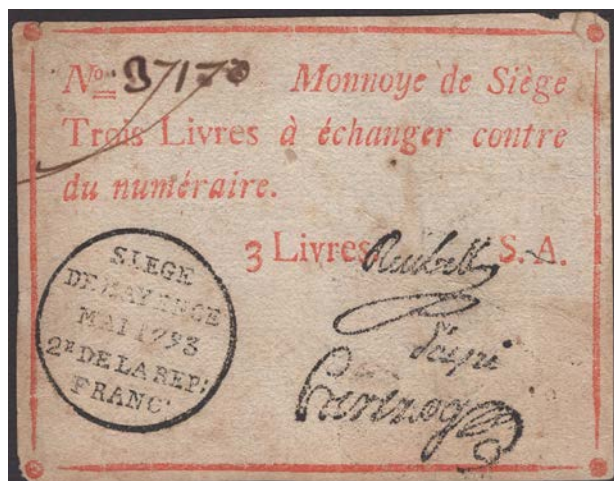 No. 37170 Monnoye de Siège
Trois Livres à échanger contre
du numéraire.
3 Livres. S. A.
SIEGE
DE MAYENCE
MAI 1793
2E DE LA REP:
FRANC.
Reubell